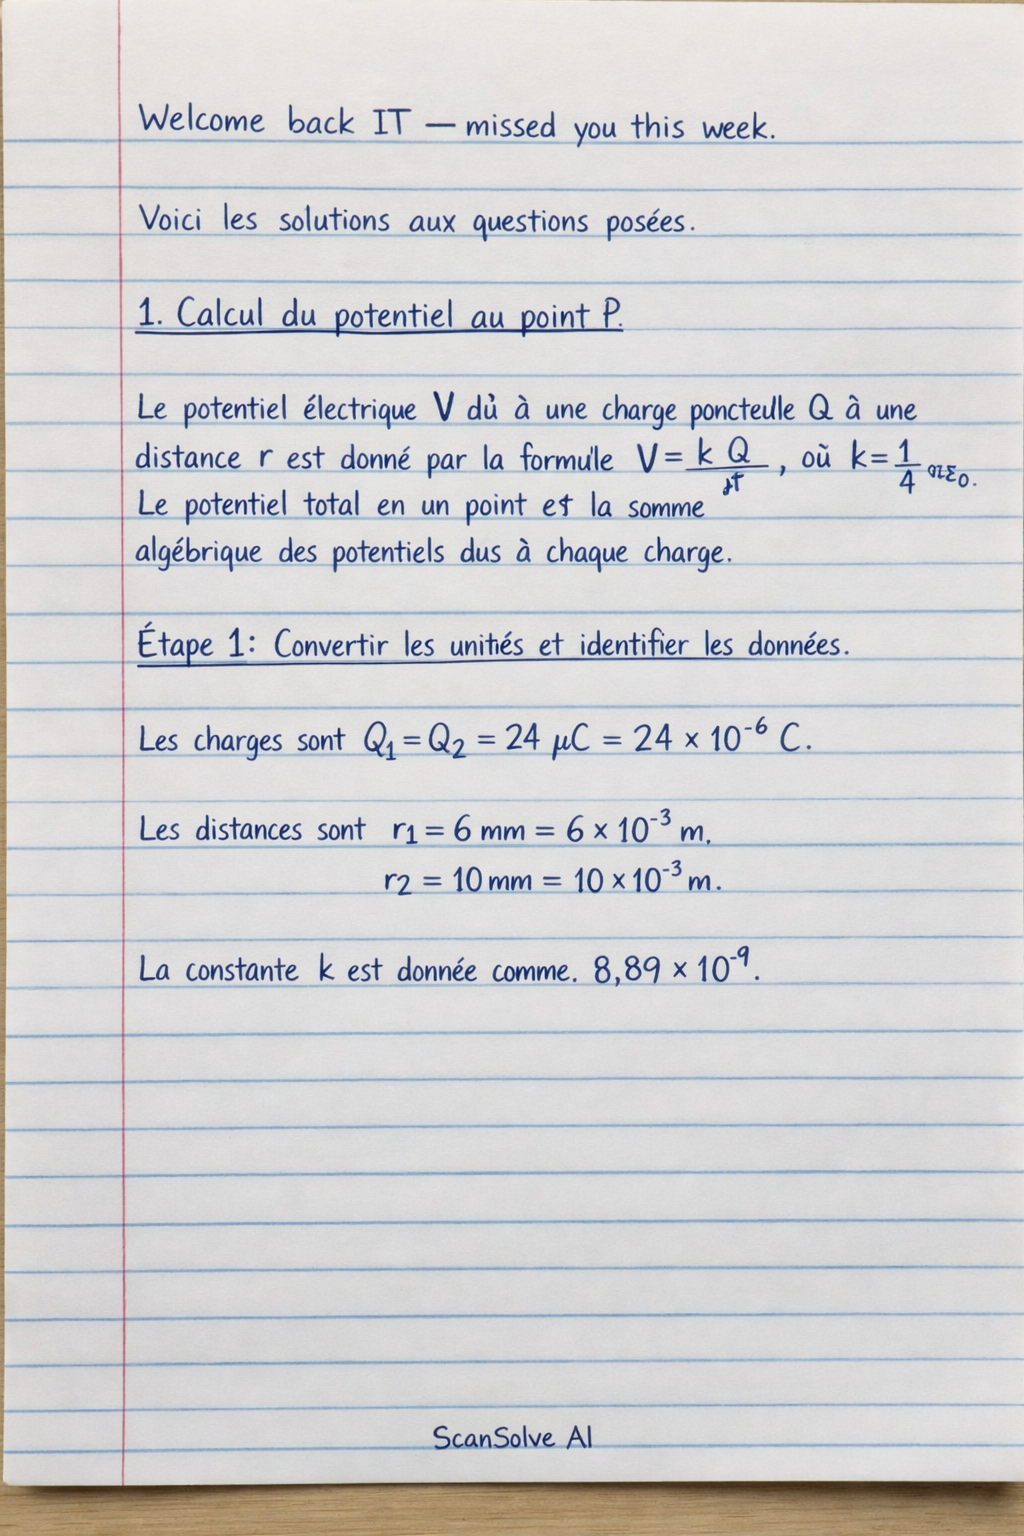 Welcome back IT — missed you this week.
Voici les solutions aux questions posées.
1. Calcul du potentiel au point P.
Le potentiel électrique V dû à une charge ponctuelle Q à une
distance r est donné par la formule V = k Q / r, où k = 1 / 4 πε0.
Le potentiel total en un point est la somme
algébrique des potentiels dus à chaque charge.
Étape 1: Convertir les unités et identifier les données.
Les charges sont Q₁ = Q₂ = 24 μC = 24 × 10⁻⁶ C.
Les distances sont r1 = 6 mm = 6 × 10⁻³ m.
r2 = 10 mm = 10 × 10⁻³ m.
La constante k est donnée comme. 8,89 × 10⁻⁹.
ScanSolve AI